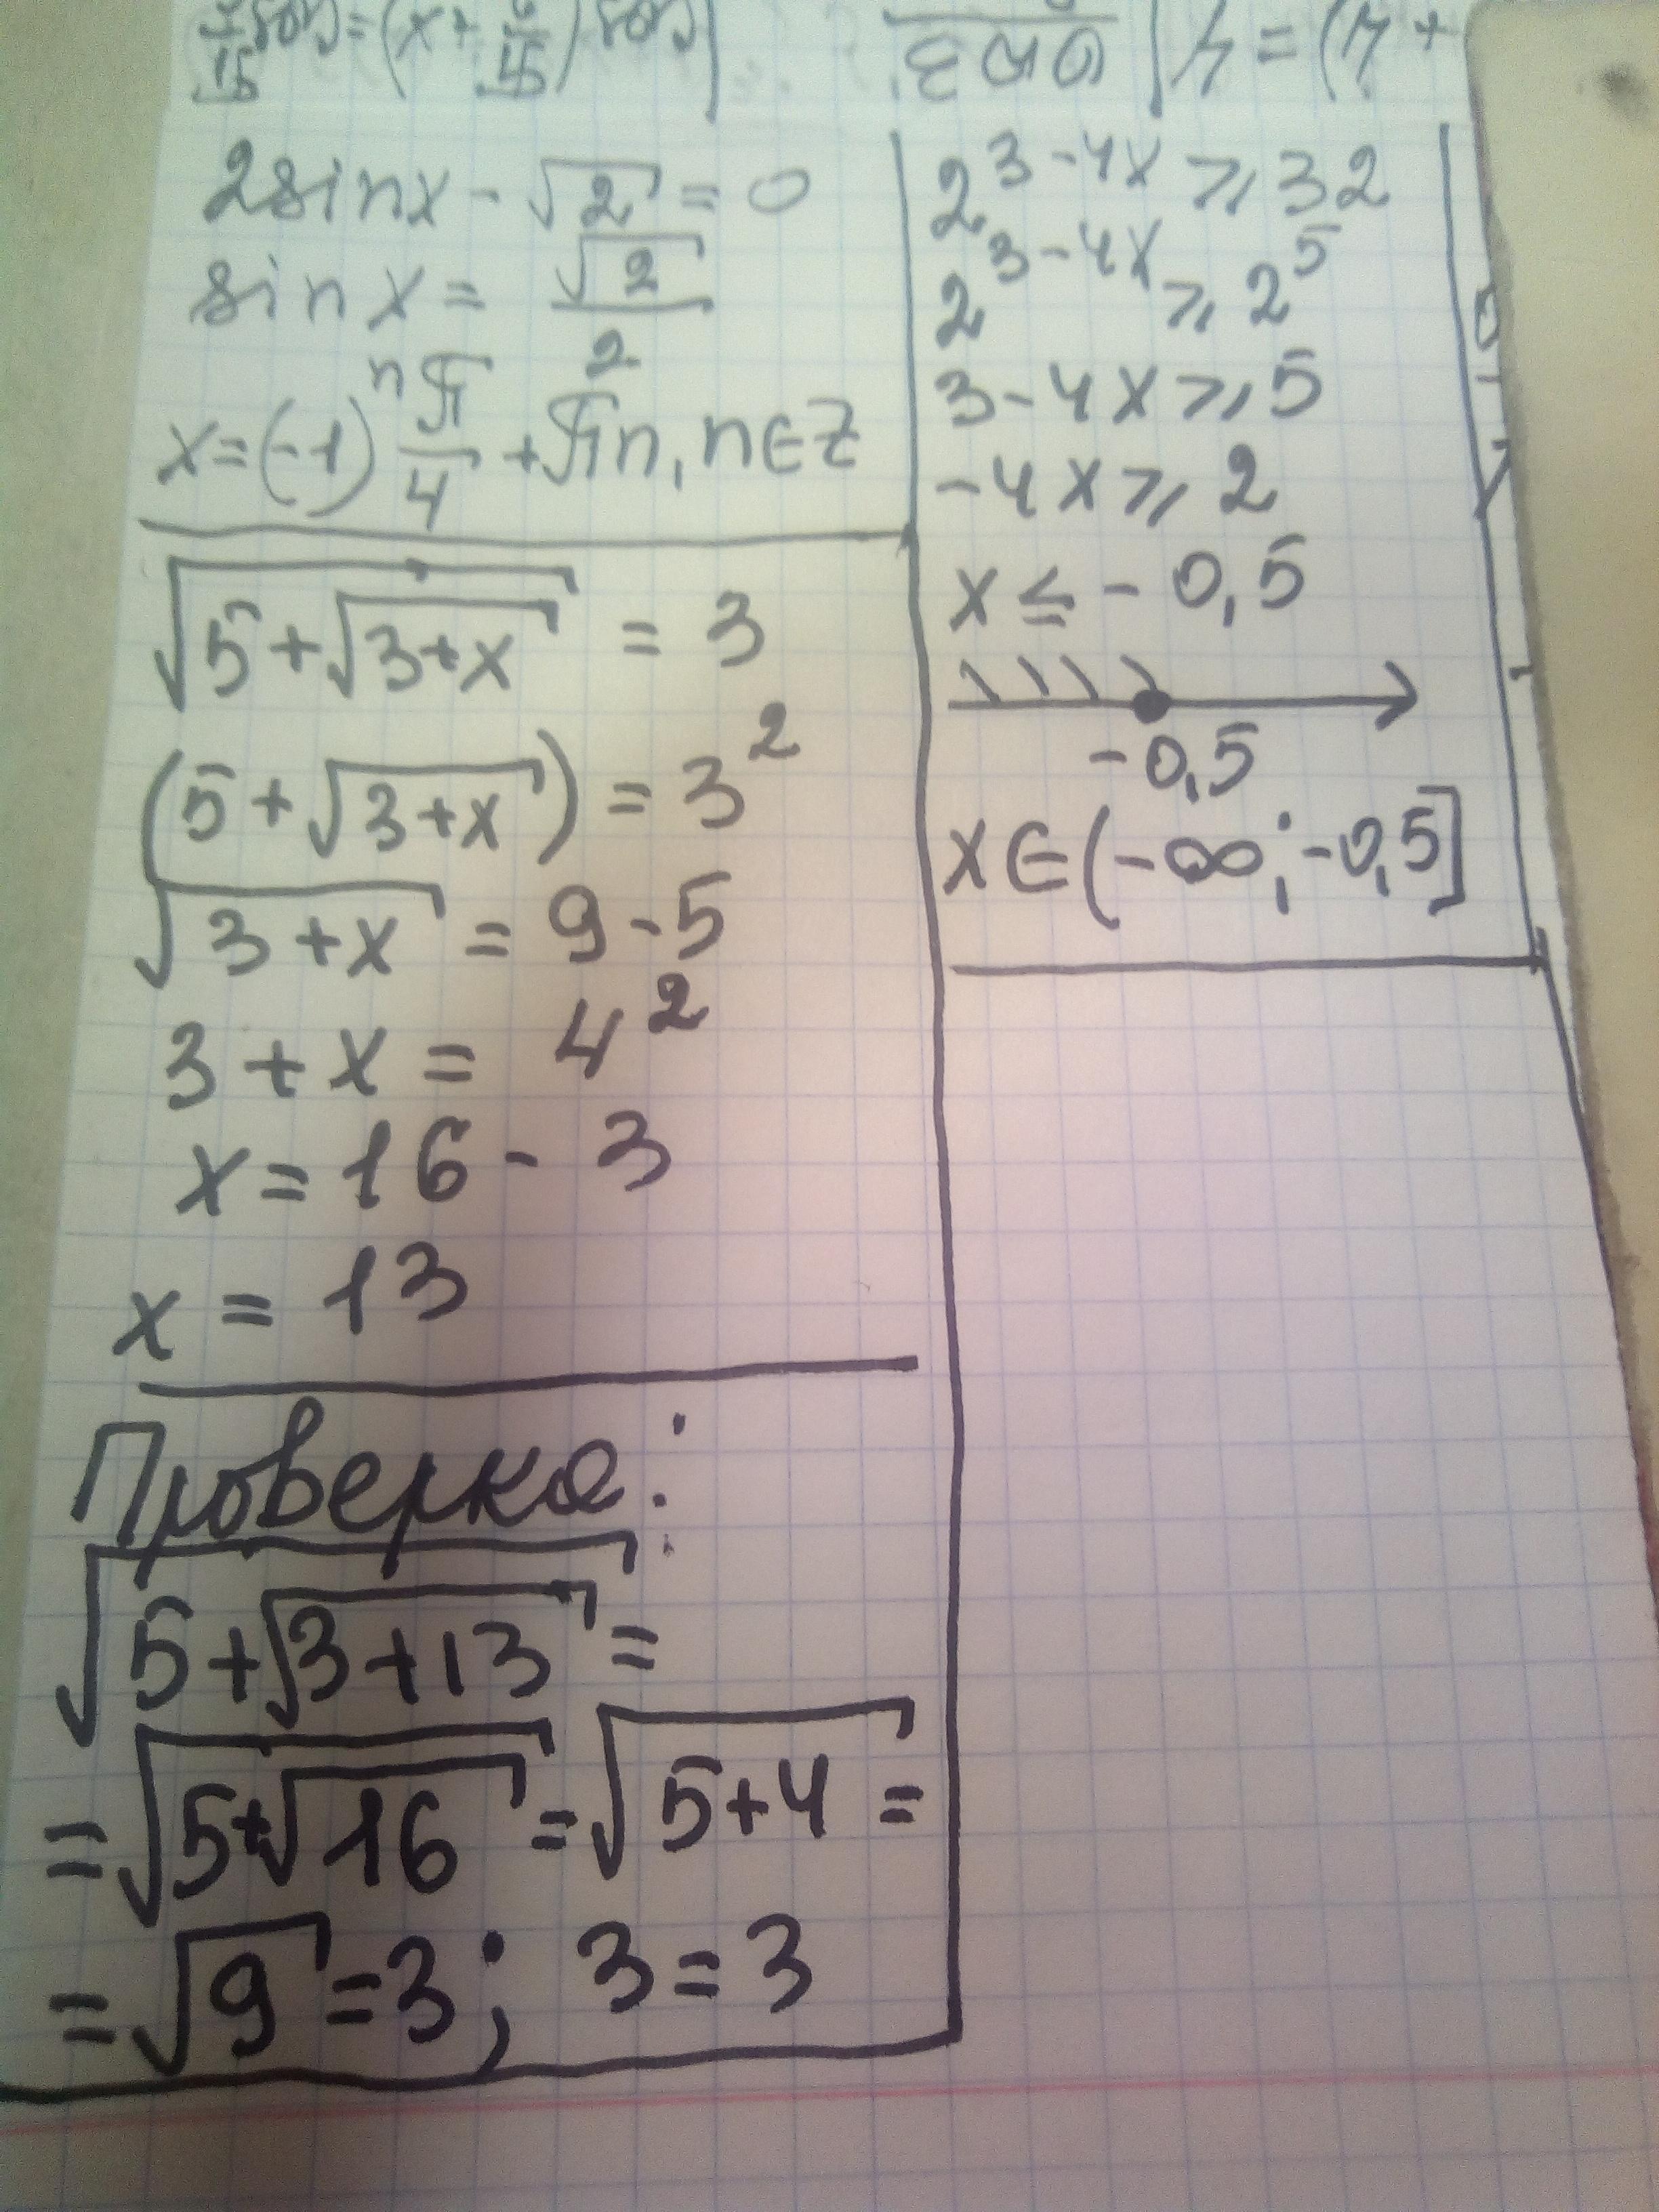 2sinx - √2 = 0
sin x = √2/2
x = (-1)ⁿ π/4 + πn, n∈Z
√(5+√(3+x)) = 3
(5+√(3+x)) = 3²
√(3+x) = 9-5
3+x = 4²
x = 16 - 3
x = 13
Проверка:
√(5+√(3+13)) =
= √(5+√16) = √(5+4) =
= √9 = 3; 3 = 3
2^(3-4x) ⩾ 32
2^(3-4x) ⩾ 2⁵
3-4x ⩾ 5
-4x ⩾ 2
x ≤ -0,5
-0,5
x∈(-∞; -0,5]